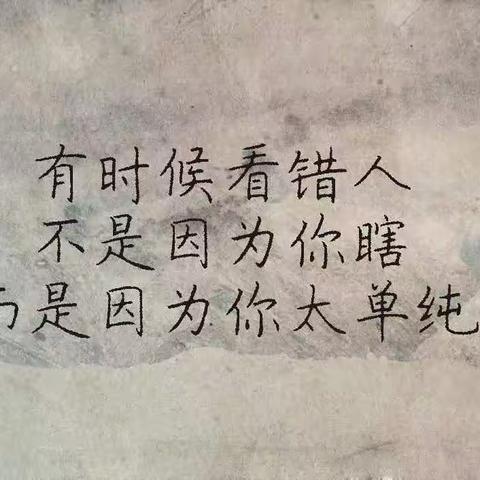 有时候看错人
不是因为你瞎
而是因为你太单纯